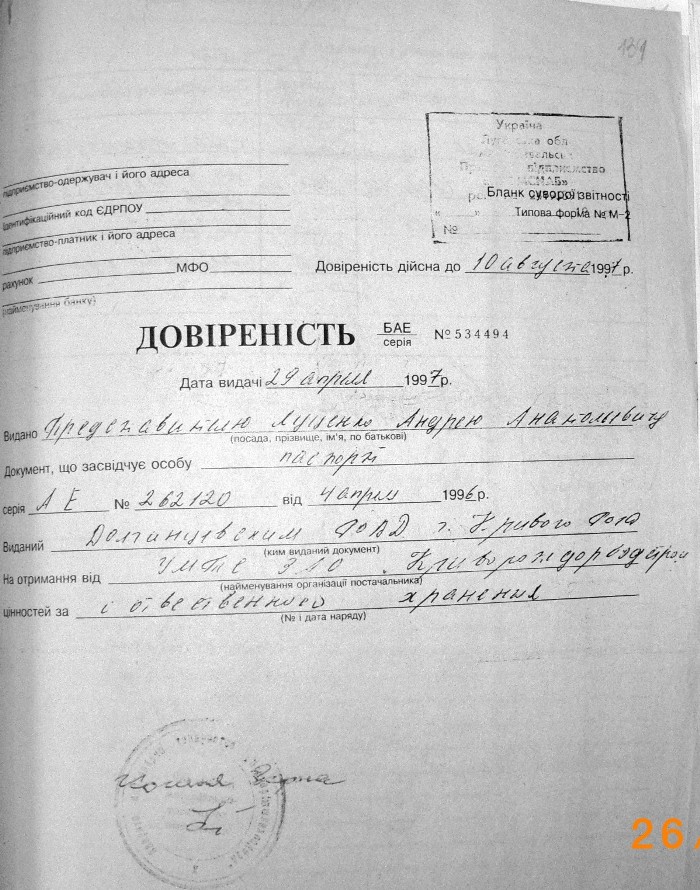 134
Україна
обл
«ІСМАБ»
Бланк суворої звітності
Типова форма № М-2
№
підприємство-одержувач і його адреса
ідентифікаційний код ЄДРПОУ
підприємство-платник і його адреса
рахунок МФО
(найменування банку)
Довіреність дійсна до 10 августа 1997 р.
ДОВІРЕНІСТЬ БАЕ серія № 534494
Дата видачі 29 апреля 1997 р.
Видано Представителю Луценко Андрею Анатольевичу
(посада, прізвище, ім'я, по батькові)
Документ, що засвідчує особу паспорт
серія АЕ № 262120 від 4 апреля 1996 р.
Виданий Долгинцевским РОВД г. Кривого Рога
(ким виданий документ)
На отримання від УМТС З10
(найменування організації постачальника)
цінностей за с ответственного хранения
(№ і дата наряду)
Копия
26